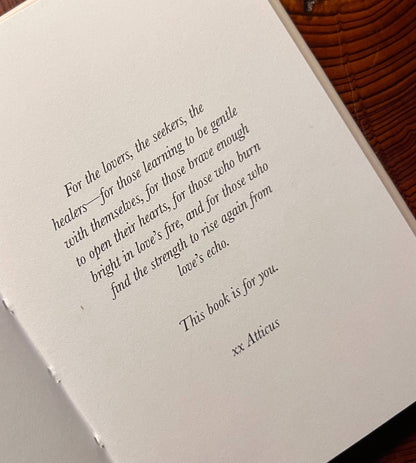 For the lovers, the seekers, the
healers—for those learning to be gentle
with themselves, for those brave enough
to open their hearts, for those who burn
bright in love's fire, and for those who
find the strength to rise again from
love's echo.
This book is for you.
xx Atticus